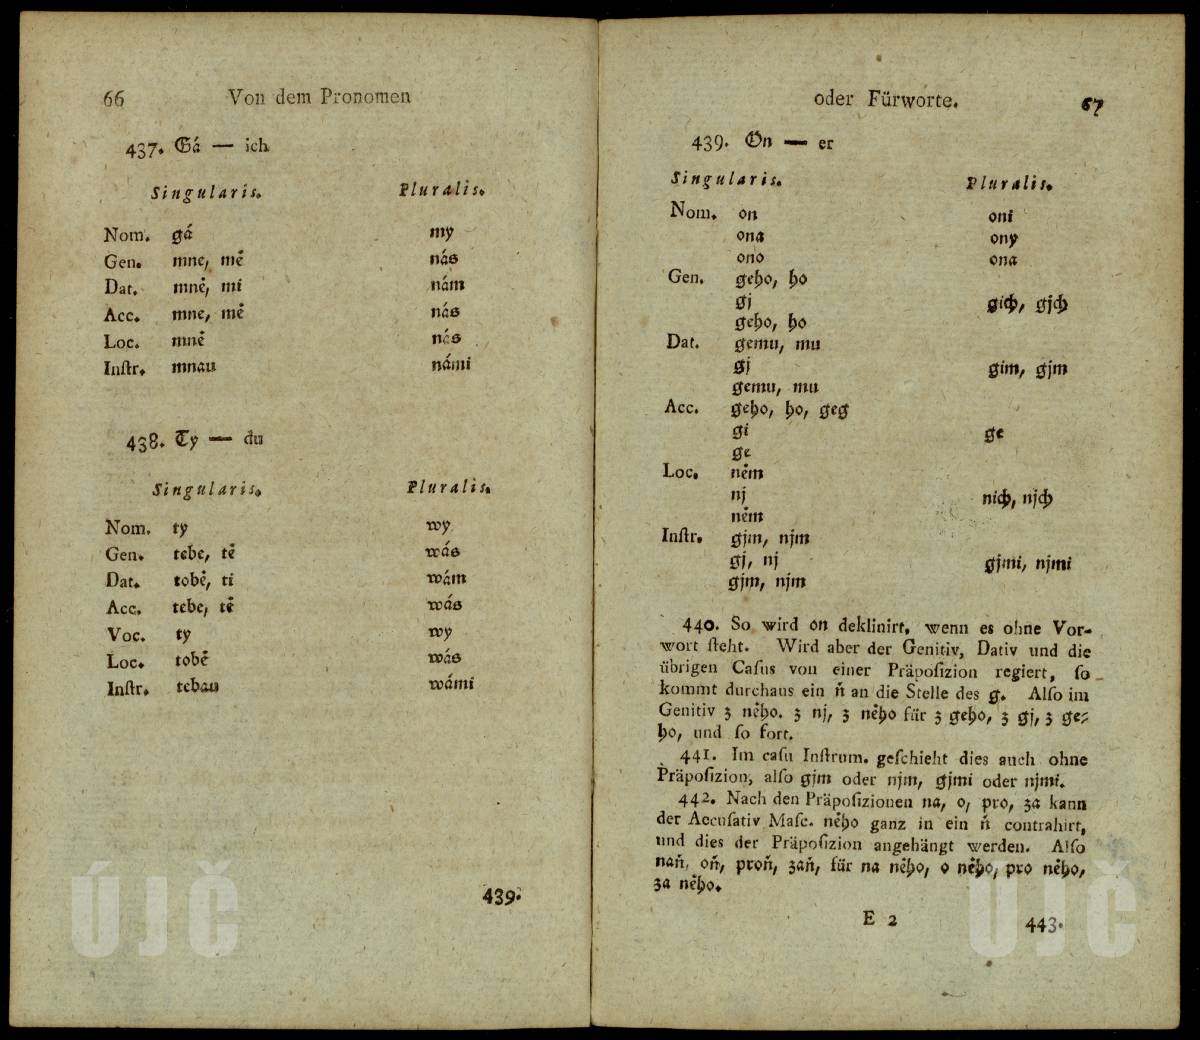 66 Von dem Pronomen
437. Gá — ich
Singularis. Pluralis.
Nom. gá my
Gen. mne, mě nás
Dat. mně, mi nám
Acc. mne, mě nás
Loc. mně nás
Inſtr. mnau námi
438. Ty — du
Singularis. Pluralis.
Nom. ty wy
Gen. tebe, tě wás
Dat. tobě, ti wám
Acc. tebe, tě wás
Voc. ty wy
Loc. tobě wás
Inſtr. tebau wámi
439.
oder Fürworte. 67
439. On — er
Singularis. Pluralis.
Nom. on oni
ona ony
ono ona
Gen. geho, ho
gj gich, gjch
geho, ho
Dat. gemu, mu
gj gim, gjm
gemu, mu
Acc. geho, ho, geg
gi ge
ge
Loc. něm
nj nich, njch
něm
Inſtr. gjm, njm
gj, nj gjmi, njmi
gjm, njm
440. So wird on deklinirt, wenn es ohne Vor-
wort ſteht. Wird aber der Genitiv, Dativ und die
übrigen Caſus von einer Präpoſizion regiert, ſo
kommt durchaus ein ň an die Stelle des g. Alſo im
Genitiv z něho. z nj, z něho für z geho, z gj, z ge-
ho, und ſo fort.
441. Im caſu Inſtrum. geſchieht dies auch ohne
Präpoſizion, alſo gjm oder njm, gjmi oder njmi.
442. Nach den Präpoſizionen na, o, pro, za kann
der Accuſativ Maſc. něho ganz in ein ň contrahirt,
und dies der Präpoſizion angehängt werden. Alſo
naň, oň, proň, zaň, für na něho, o něho, pro něho,
za něho.
E 2 443.
UJČ UJČ